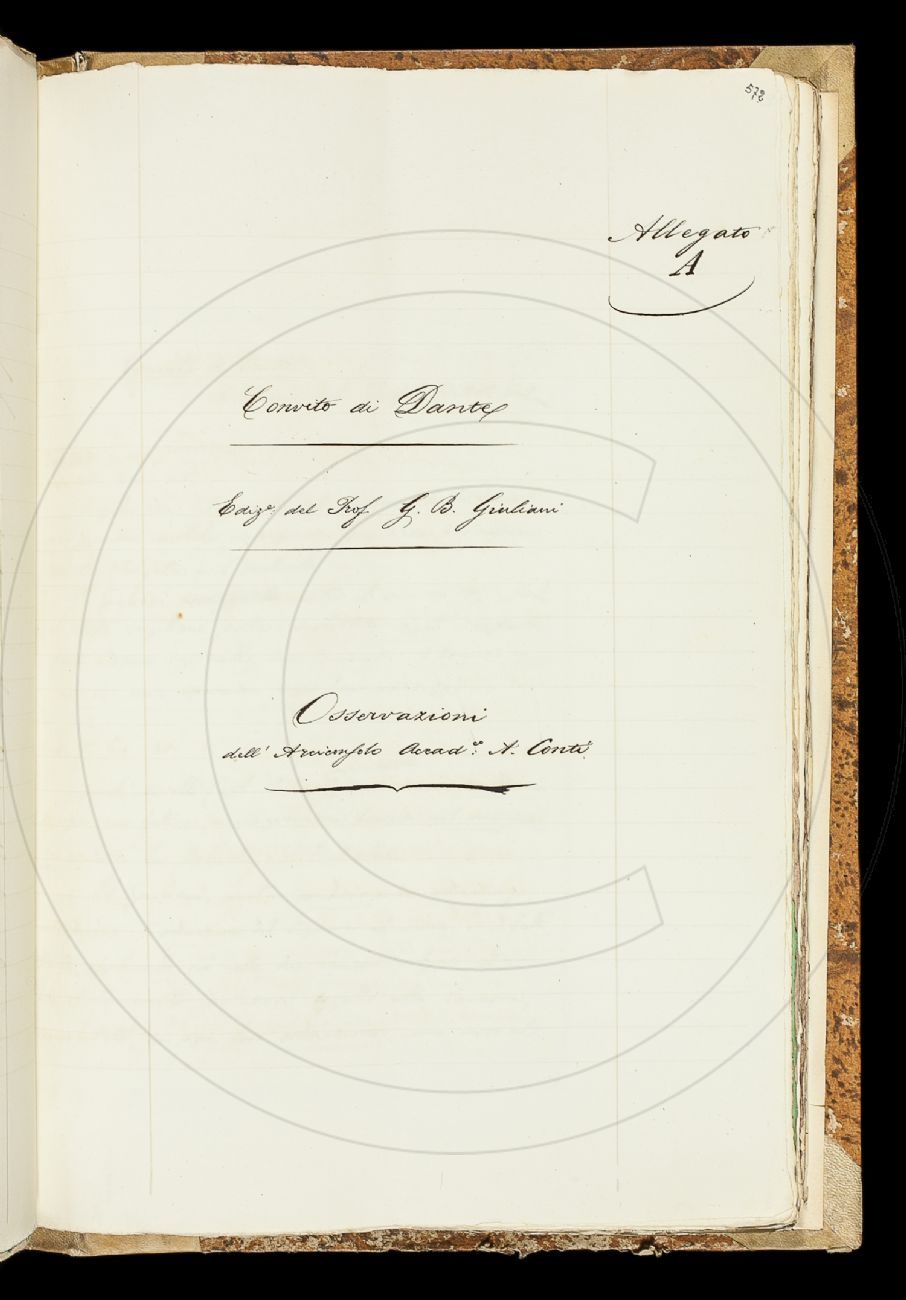 572
Allegato
A
Convito di Dante
Ediz.e del Prof. G. B. Giuliani
Osservazioni
dell' Arciconsolo Accad.o: A. Conti.